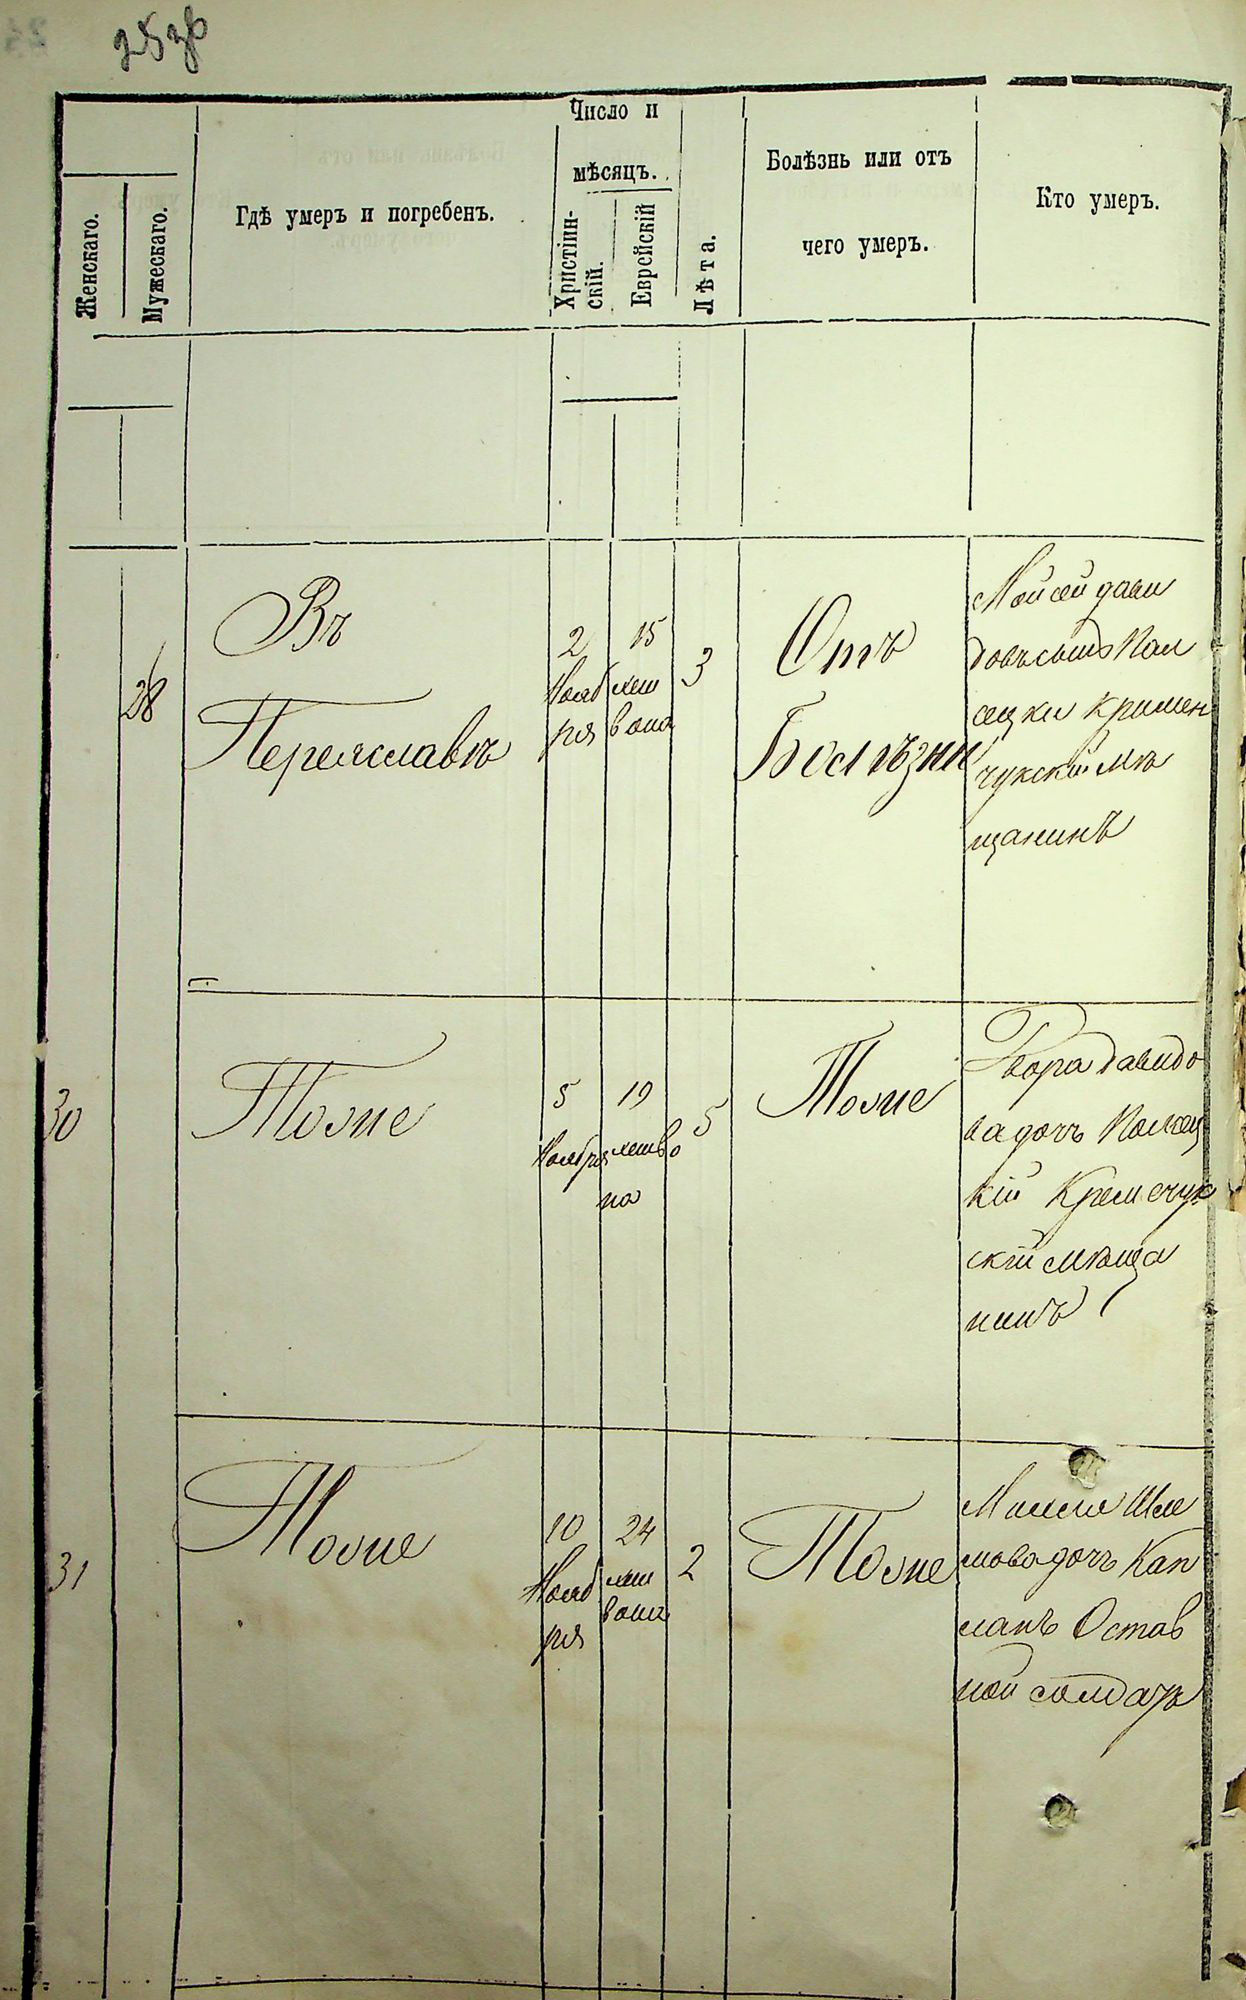 Женскаго.
Мужескаго.
Гдѣ умеръ и погребенъ.
Число и
мѣсяцъ.
Христіин-
скій.
Еврейскій
Лѣта.
Болѣзнь или отъ
чего умеръ.
Кто умеръ.
28
Въ
Переяславѣ
2
Нояб
ря
15
хеш
вана
3
Отъ
Болѣзни
Мойсей дави
довъ сынъ Пол
ецки кримен
чукскій мѣ
щанинъ
30
Тоже
5
Ноября
19
хешво
на
5
Тоже
Двора давидо
ва дочь Полец
кій Кремечук
скій мѣща
нинъ
31
Тоже
10
Нояб
ря
24
хеш
вана
2
Тоже
мова дочь Кап
ланъ Остав
ной солдатъ